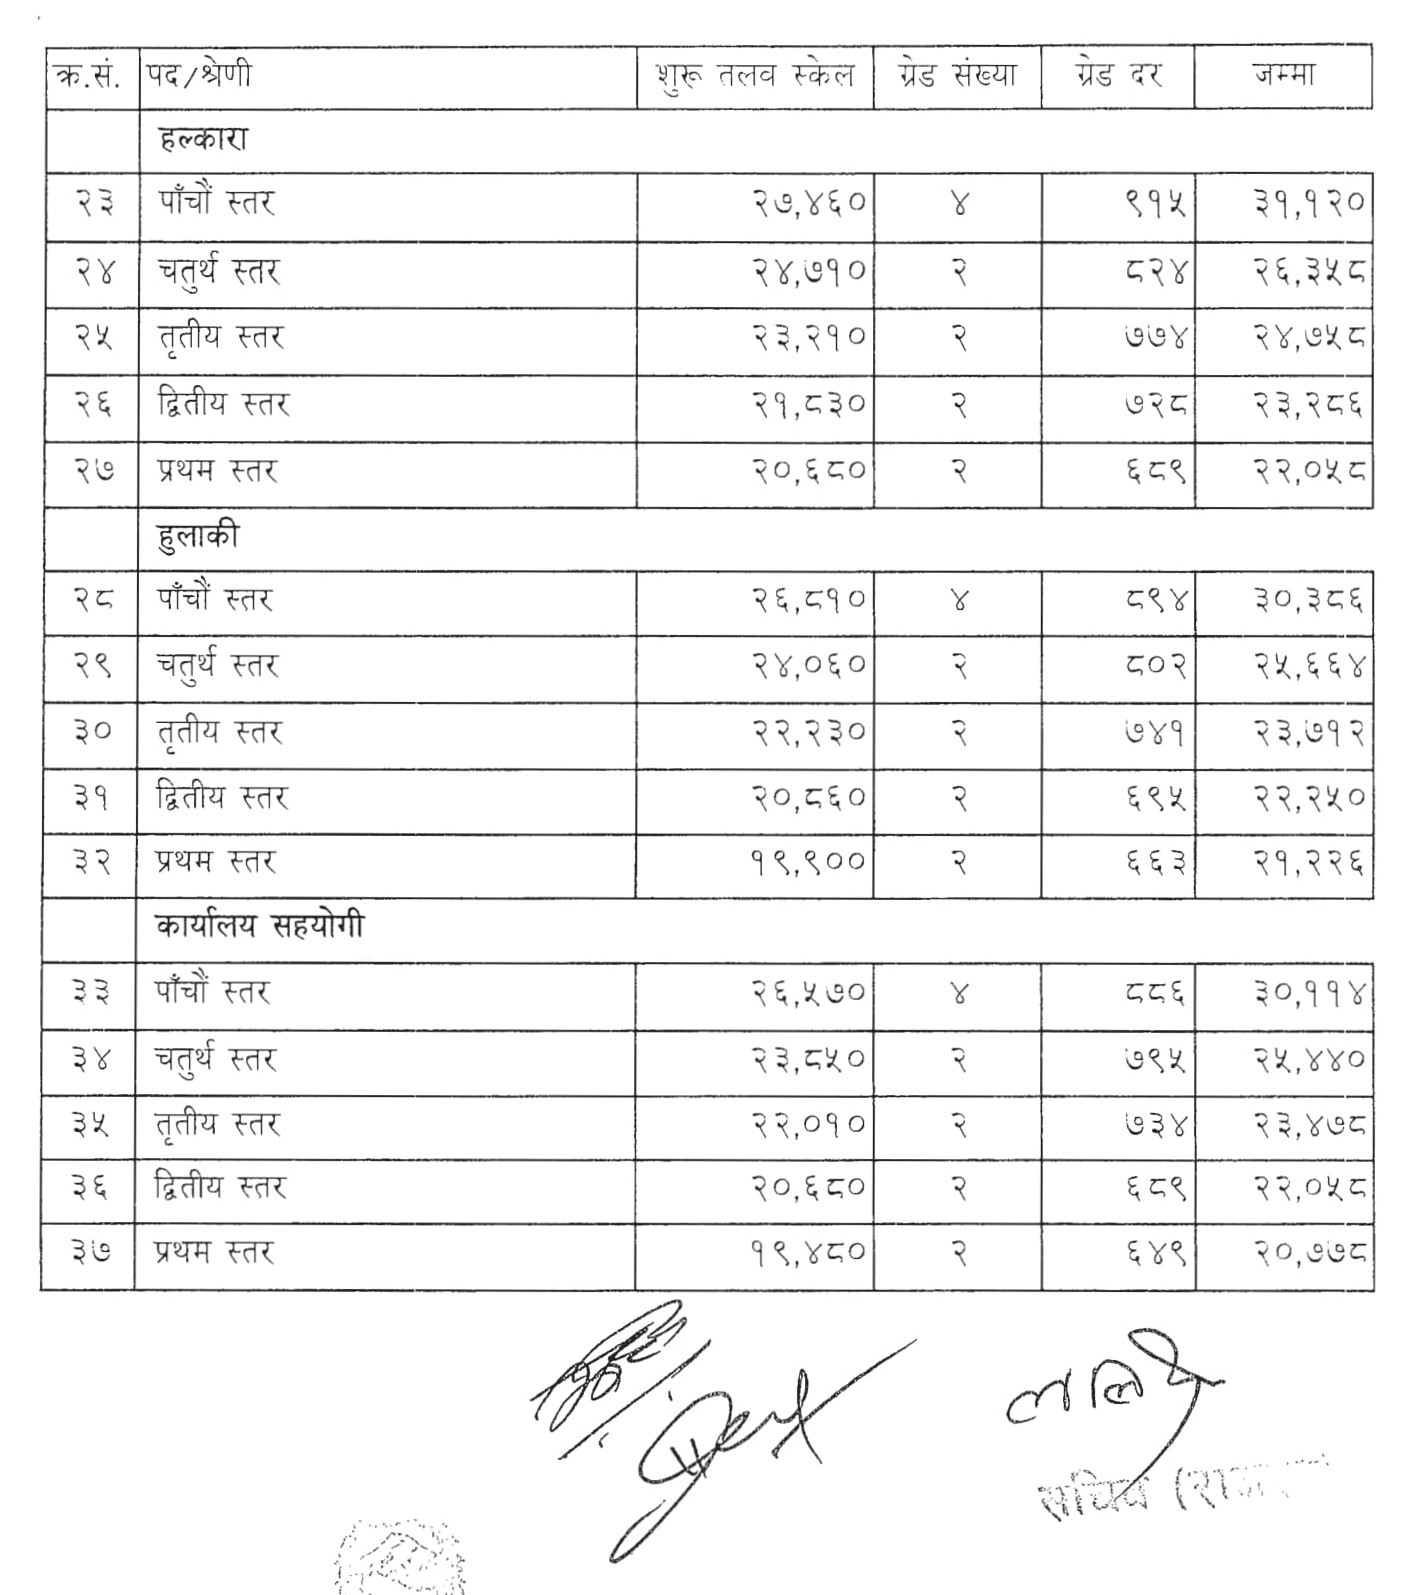 क्र.सं. पद/श्रेणी शुरू तलव स्केल ग्रेड संख्या ग्रेड दर जम्मा
हल्कारा
२३ पाँचौं स्तर २७,४६० ४ ९१५ ३१,१२०
२४ चतुर्थ स्तर २४,७१० २ ८२४ २६,३५८
२५ तृतीय स्तर २३,२१० २ ७७४ २४,७५८
२६ द्वितीय स्तर २१,८३० २ ७२८ २३,२८६
२७ प्रथम स्तर २०,६८० २ ६८९ २२,०५८
हुलाकी
२८ पाँचौं स्तर २६,८१० ४ ८९४ ३०,३८६
२९ चतुर्थ स्तर २४,०६० २ ८०२ २५,६६४
३० तृतीय स्तर २२,२३० २ ७४१ २३,७१२
३१ द्वितीय स्तर २०,८६० २ ६९५ २२,२५०
३२ प्रथम स्तर १९,९०० २ ६६३ २१,२२६
कार्यालय सहयोगी
३३ पाँचौं स्तर २६,५७० ४ ८८६ ३०,११४
३४ चतुर्थ स्तर २३,८५० २ ७९५ २५,४४०
३५ तृतीय स्तर २२,०१० २ ७३४ २३,४७८
३६ द्वितीय स्तर २०,६८० २ ६८९ २२,०५८
३७ प्रथम स्तर १९,४८० २ ६४९ २०,७७८
सचिव